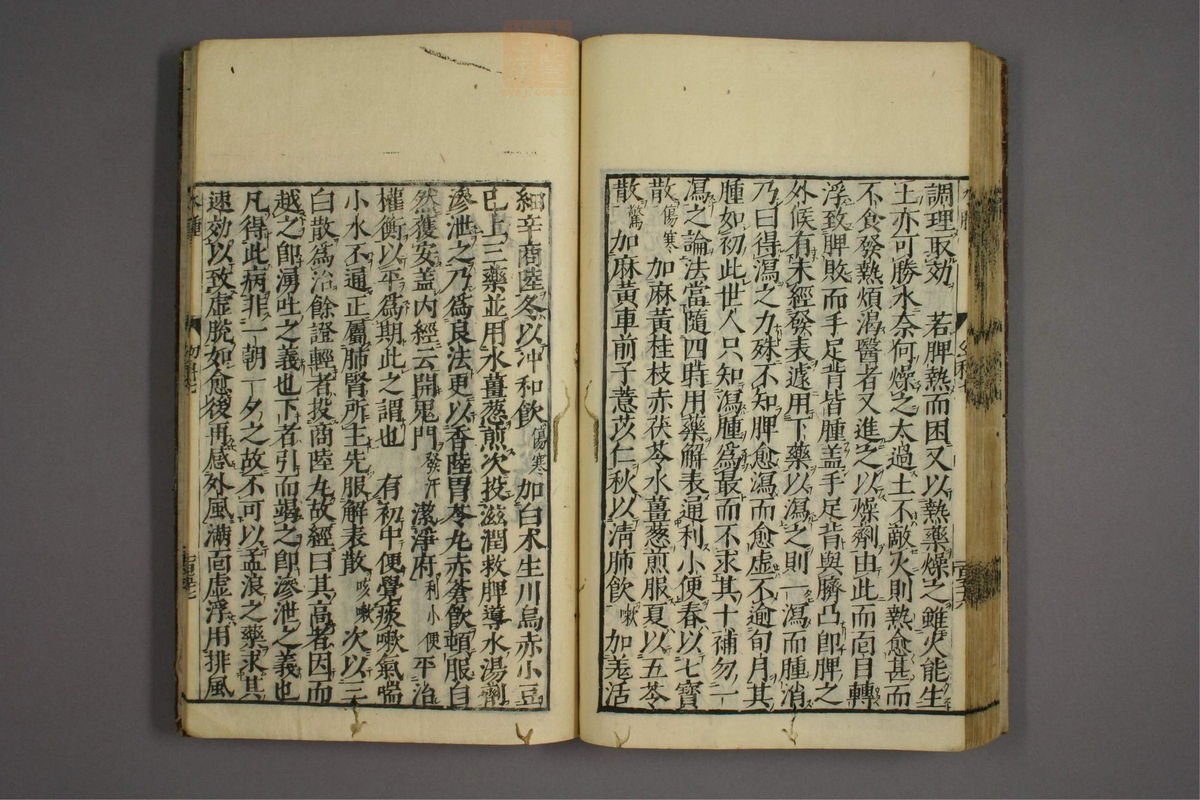 調理取効　若脾熱而困又以熱藥燥之雖火能生
土亦可勝水奈何燥之太過土不敵火則熱愈甚而
不食發熱煩渇醫者又進之以燥劑由此而面目轉
浮致脾敗而手足背皆腫盖手足背與臍凸即脾之
外候有未經發表遽用下藥以瀉之則一瀉而腫消
乃曰得瀉之力殊不知脾愈瀉而愈虚不逾旬月其
腫如初此世人只知瀉腫爲最而不求其十補勿一
瀉之論法當隨四時用藥解表通利小便春以七寳
散傷寒加麻黄桂枝赤茯苓水薑葱煎服夏以五苓
散驚加麻黄車前子薏苡仁秋以清肺飲嗽加羗活
細辛商陸冬以冲和飲傷寒加白术生川烏赤小豆
已上三藥並用水薑葱煎次投滋潤救脾導水湯劑
滲泄之乃爲良法更以香陸胃苓丸赤蒼飲頓服自
然獲安盖内經云開鬼門發汗潔淨府利小便平治
權衡以平爲期此之謂也　有初中便覺痰嗽氣喘
小水不通正屬肺腎所主先服解表散咳嗽次以三
白散爲治餘證輕者投商陸丸故經曰其高者因而
越之即湧吐之義也下者引而竭之即滲泄之義也
凡得此病非一朝一夕之故不可以孟浪之藥求其
速効以致虚脱如愈後再感外風満面虚浮用排風
水腫